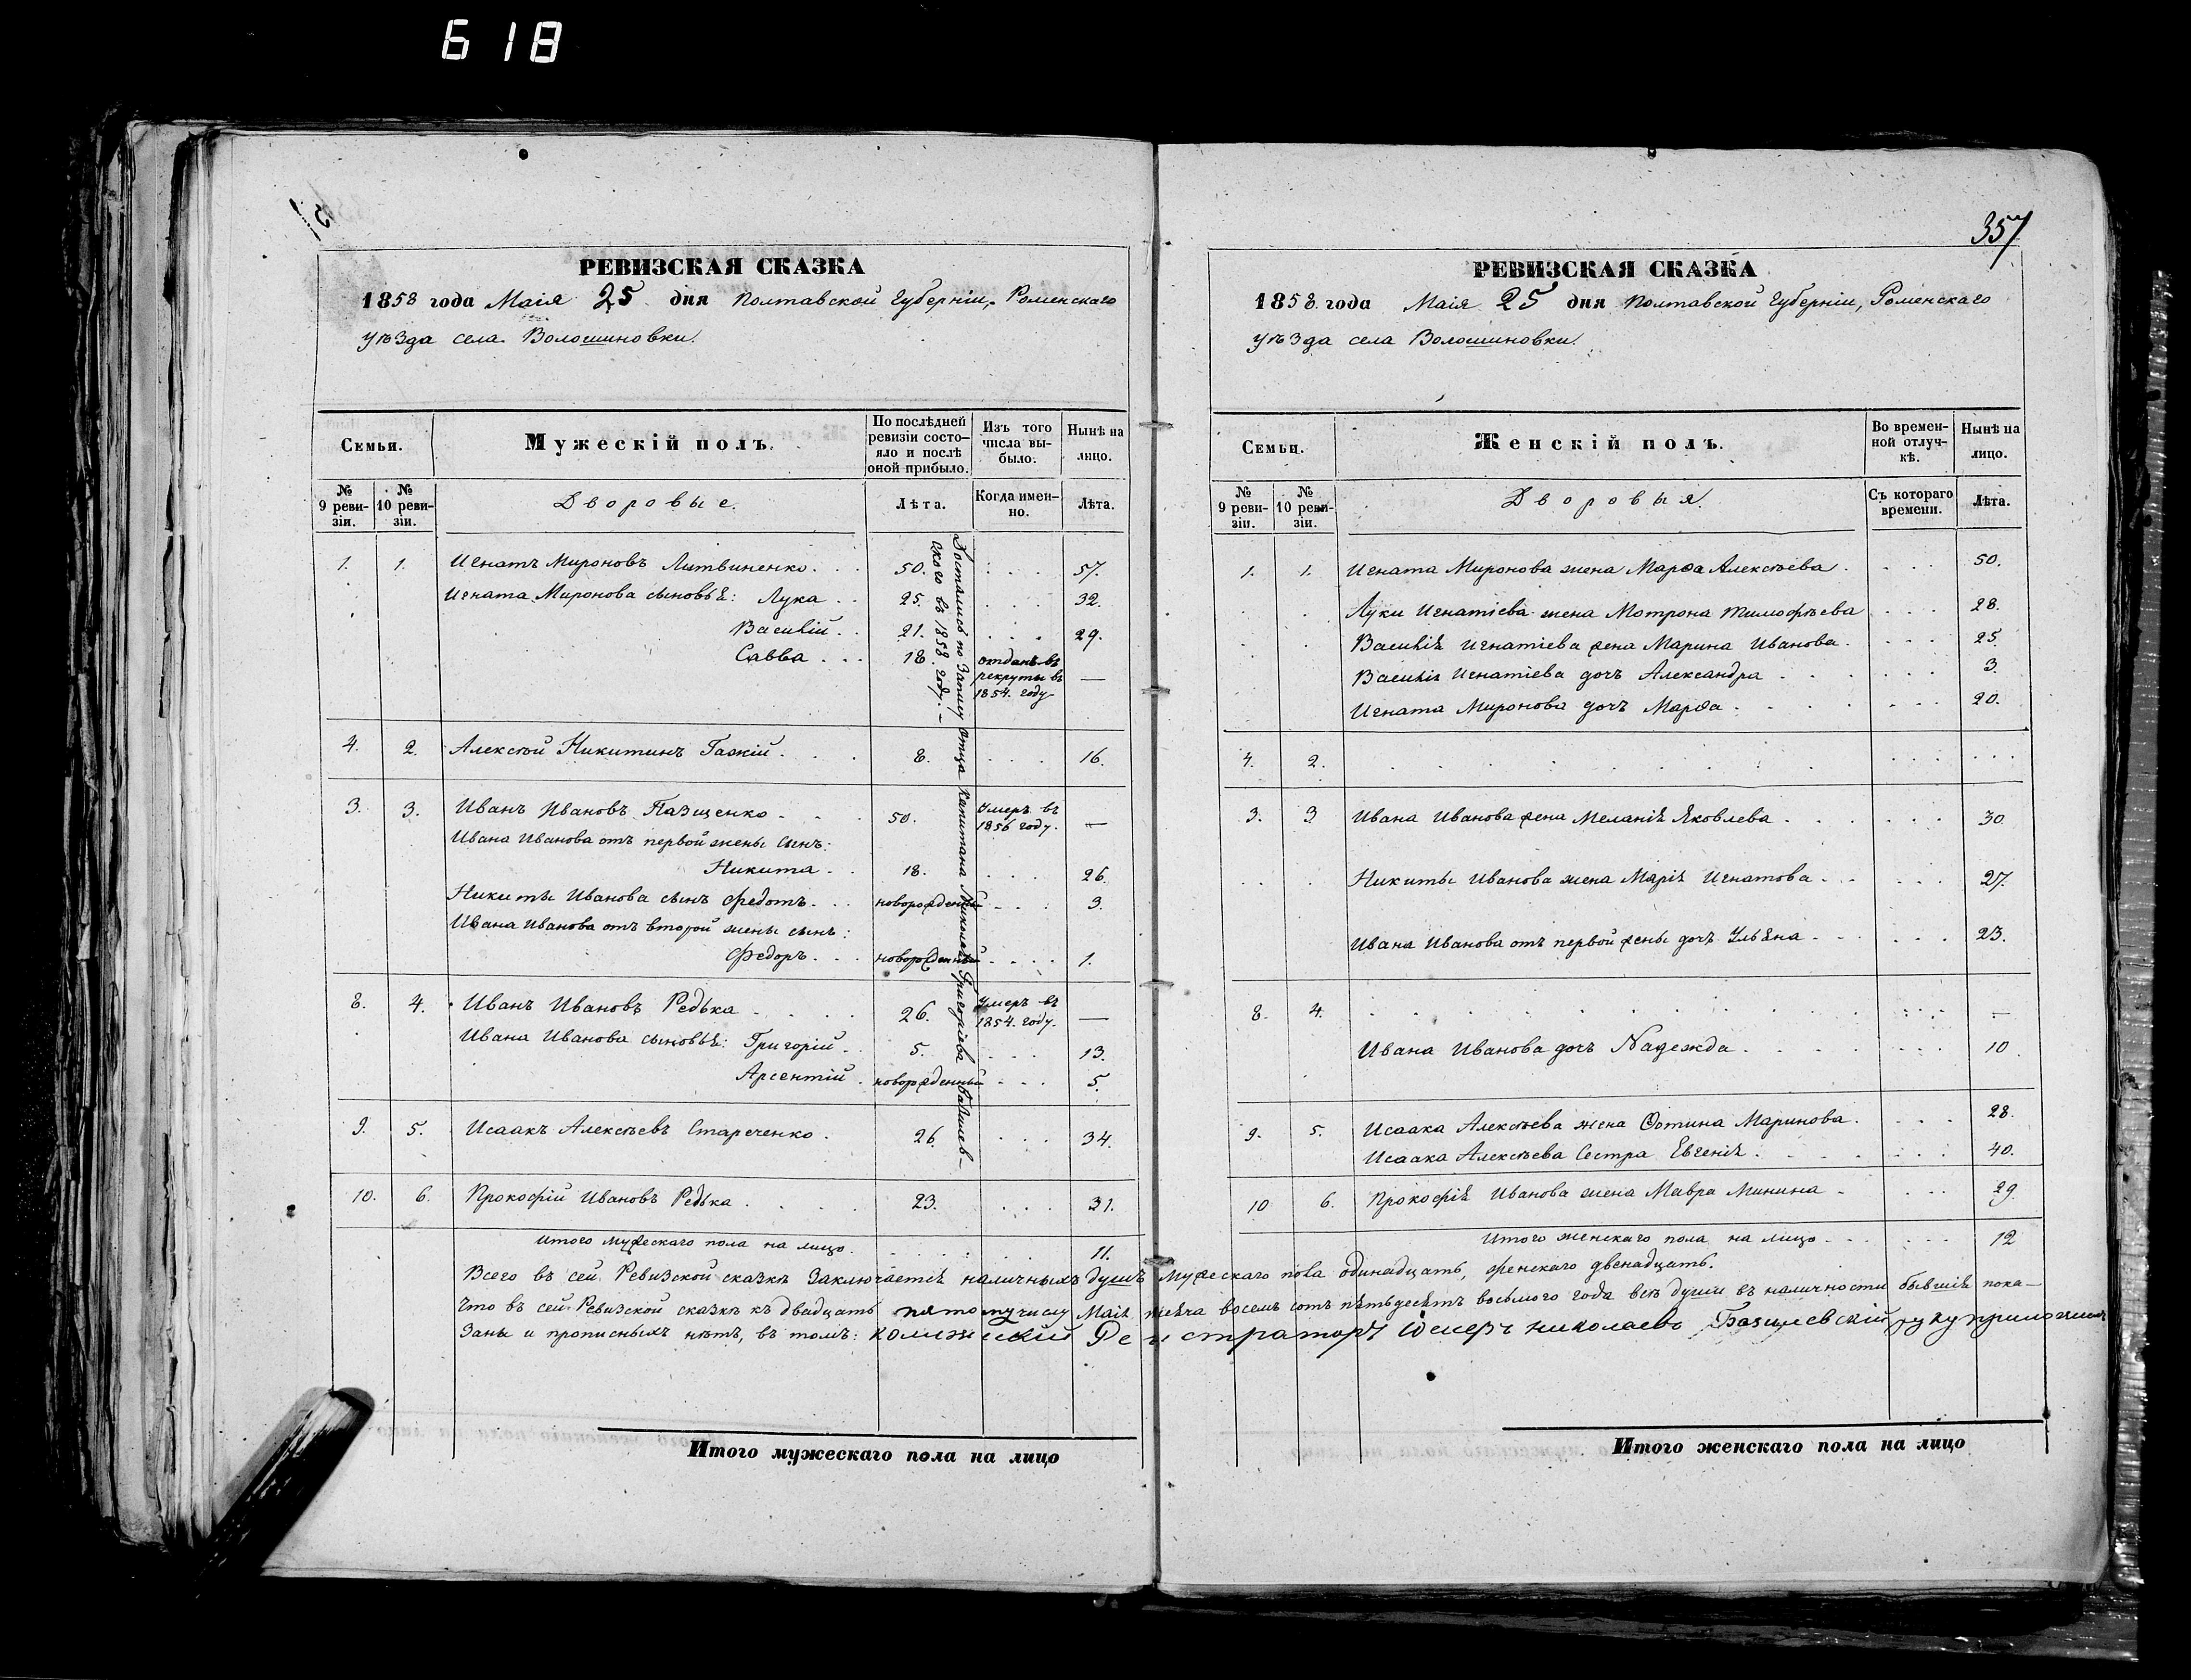 618
357
РЕВИЗСКАЯ СКАЗКА
1858 года Маія 25 дня Полтавской Губерніи, Роменскаго
уѣзда села Волошиновки.
Семьи.
Мужескій полъ.
По послѣдней ревизіи состо-
яло и послѣ оной прибыло.
Изъ того числа вы-
было.
Нынѣ на лицо.
№ 9 реви-
зіи.
№ 10 реви-
зіи.
Дворовые.
Лѣта.
Когда имен-
но.
Лѣта.
1. 1. Игнатъ Мироновъ Литвиненко . . . 50. . . . 57.
Игната Миронова сыновья: Лука . . 25. . . . 32.
Василій . . 21. . . . 29.
Савва . . . 18. отданъ въ рекруты въ 1854. году —
4. 2. Алексѣй Никитинъ Гаджій . . . 8. . . . 16.
3. 3. Иванъ Ивановъ Пазщенко . . . 50. Умеръ въ 1856 году. —
Ивана Иванова отъ первой жены сынъ:
Никита . . 18. . . . 26.
Никиты Иванова сынъ Федотъ . . . новорожденный . . . 3.
Ивана Иванова отъ второй жены сынъ:
Федоръ . . . новорожденный . . . . 1.
8. 4. Иванъ Ивановъ Редька . . . . 26. Умеръ въ 1854. году. —
Ивана Иванова сыновья: Григорій . . 5. . . . 13.
Арсентій . новорожденный . . . 5.
9. 5. Исаакъ Алексѣевъ Стареченко . 26. . . . 34.
10. 6. Прокофій Ивановъ Редька . . . . 23. . . . 31.
Итого мужескаго пола на лицо . . . . . . 11.
Достались по Запису отца Капитана Николая Григорієва Базилев-
скаго въ 1858. году. —
РЕВИЗСКАЯ СКАЗКА
1858. года Маія 25 дня Полтавской Губерніи, Роменскаго
уѣзда села Волошиновки.
Семьи.
Женскій полъ.
Во времен-
ной отлуч-
кѣ.
Нынѣ на лицо.
№ 9 реви-
зіи.
№ 10 реви-
зіи.
Дворовыя.
Съ котораго времени.
Лѣта.
1. 1. Игната Миронова жена Марѳа Алексѣева . . . . 50.
Луки Игнатіева жена Мотрона Тимофѣева . . . 28.
Василія Игнатіева жена Марина Иванова . . . . 25.
Василія Игнатіева дочь Александра . . . . . . 3.
Игната Миронова дочь Марѳа . . . . . . . 20.
4. 2. . . . . . . . . . . . .
3. 3 Ивана Иванова жена Меланія Яковлева . . . . . . 30
Никиты Иванова жена Марія Игнатова . . . . . . 27.
Ивана Иванова отъ первой жены дочь Ульяна . . . . . . 23.
8. 4. . . . . . . . . . . . —
Ивана Иванова дочь Надежда . . . . . . . 10.
9. 5. Исаака Алексѣева жена Фотина Маринова . . . . 28.
Исаака Алексѣева Сестра Евгенія . . . . . . . 40.
10 6. Прокофія Иванова жена Мавра Минина . . . . 29.
Итого женскаго пола на лицо . . . . . . 12
Всего въ сей Ревизской сказкѣ заключается наличныхъ душъ мужескаго пола одинадцать, женскаго двенадцать.
Что въ сей Ревизской сказкѣ къ двадцать пятому числу Маія мѣсяца восемь сотъ пятьдесятъ восьмого года всѣ души въ наличности бывшія пока—
заны и прописныхъ нѣтъ, въ томъ: Колижеский Регистраторъ Николаевъ Базилевский руку приложилъ
Итого мужескаго пола на лицо
Итого женскаго пола на лицо